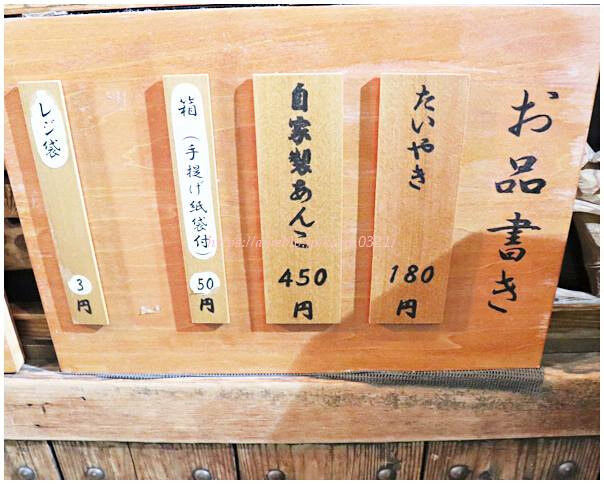 お品書き
たいやき
180
円
自家製あんこ
450
円
箱(手提げ紙袋付)
50
円
レジ袋
3
円